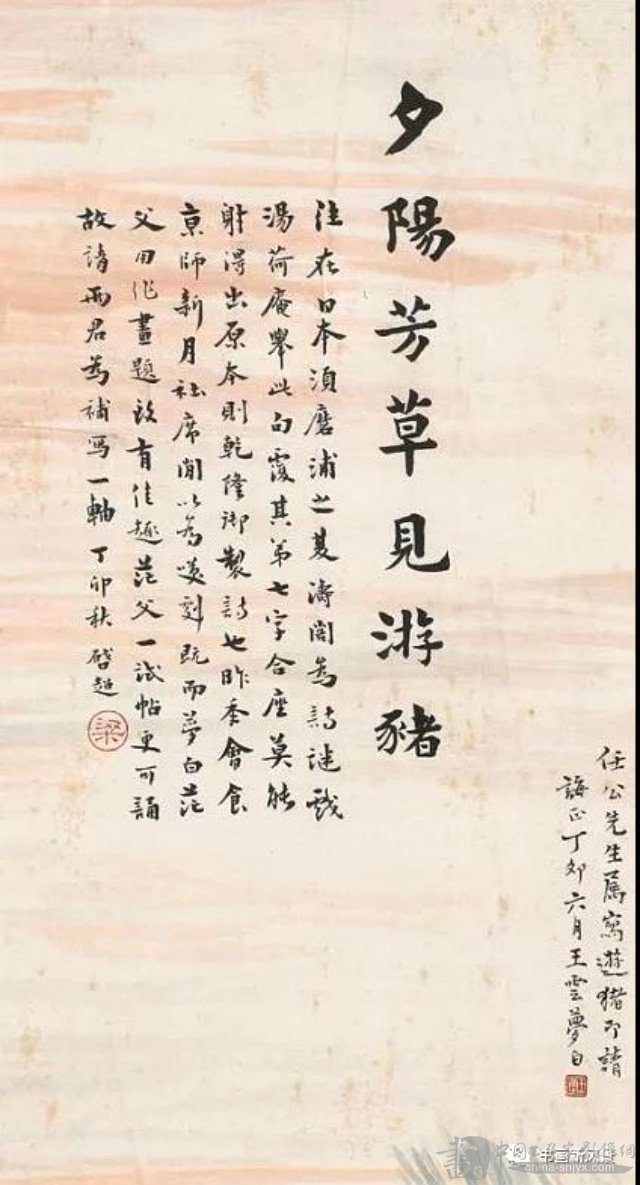 夕陽芳草見游豬
往在日本須磨浦之雙濤閣為詩謎戲
湯荷庵舉此句覆其第七字合座莫能
射得出原本則乾隆御製詩也昨季會食
京師新月社席間以為笑劇既而夢白茫
父因作畫題跋有佳趣茫父一跋帖更可誦
故請兩君為補寫一軸 丁卯秋 啓超
梁
任公先生屬寫遊豬即請
誨正丁卯六月王雲夢白
王
書画新视野
china-shjyx.com